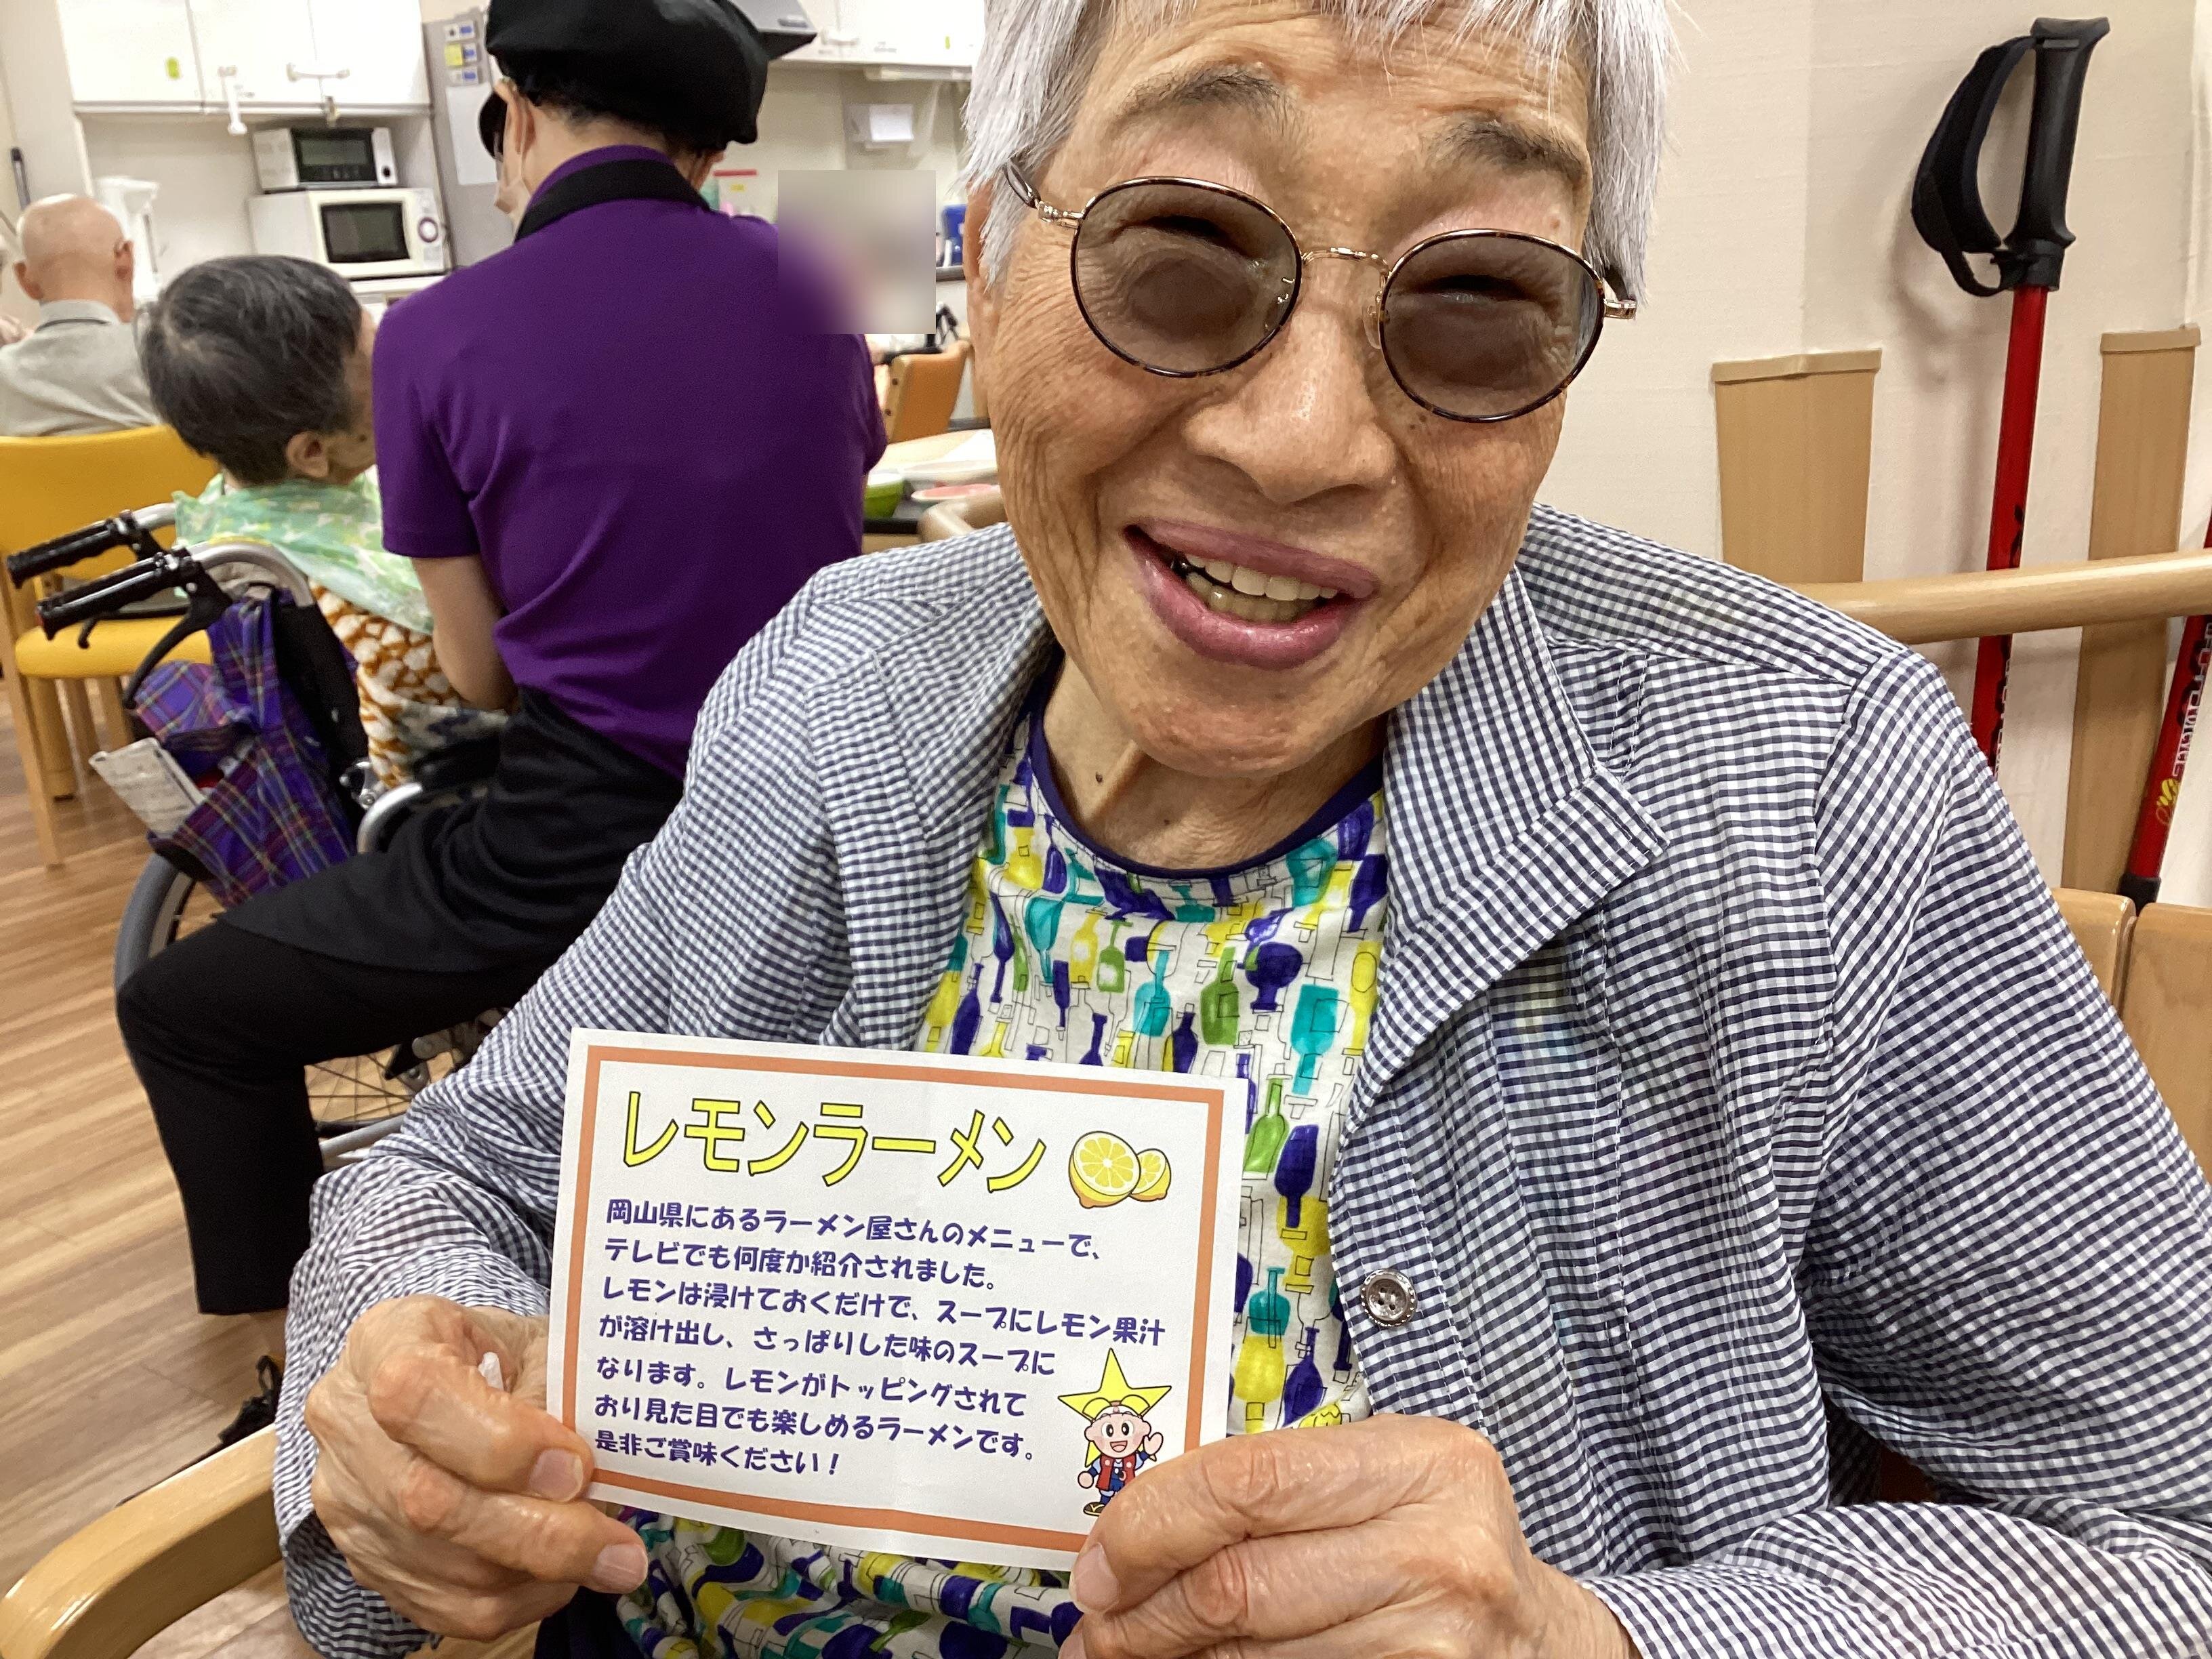 レモンラーメン
岡山県にあるラーメン屋さんのメニューで、
テレビでも何度か紹介されました。
レモンは浸けておくだけで、スープにレモン果汁
が溶け出し、さっぱりした味のスープに
なります。レモンがトッピングされて
おり見た目でも楽しめるラーメンです。
是非ご賞味ください！